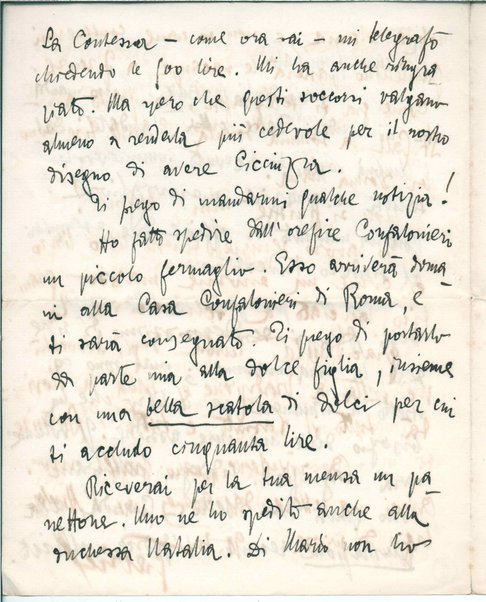 La Contessa – come ora sai – mi telegrafò
chiedendo le 500 lire. Mi ha anche ringra
ziato. Ma spero che questi soccorsi valgano
almeno a renderla più cedevole per il nostro
disegno di avere Cicciuzza.
Ti prego di mandarmi qualche notizia!
Ho fatto spedire dall'orefice Confalonieri
un piccolo fermaglio. Esso arriverà doma
ni alla Casa Confalonieri di Roma, e
ti sarà consegnato. Ti prego di portarlo
da parte mia alla dolce figlia, insieme
con una bella scatola di dolci per cui
ti accludo cinquanta lire.
Riceverai per la tua mensa un pa
nettone. Uno ne ho spedito anche alla
duchessa Natalia. Di Mario non ho